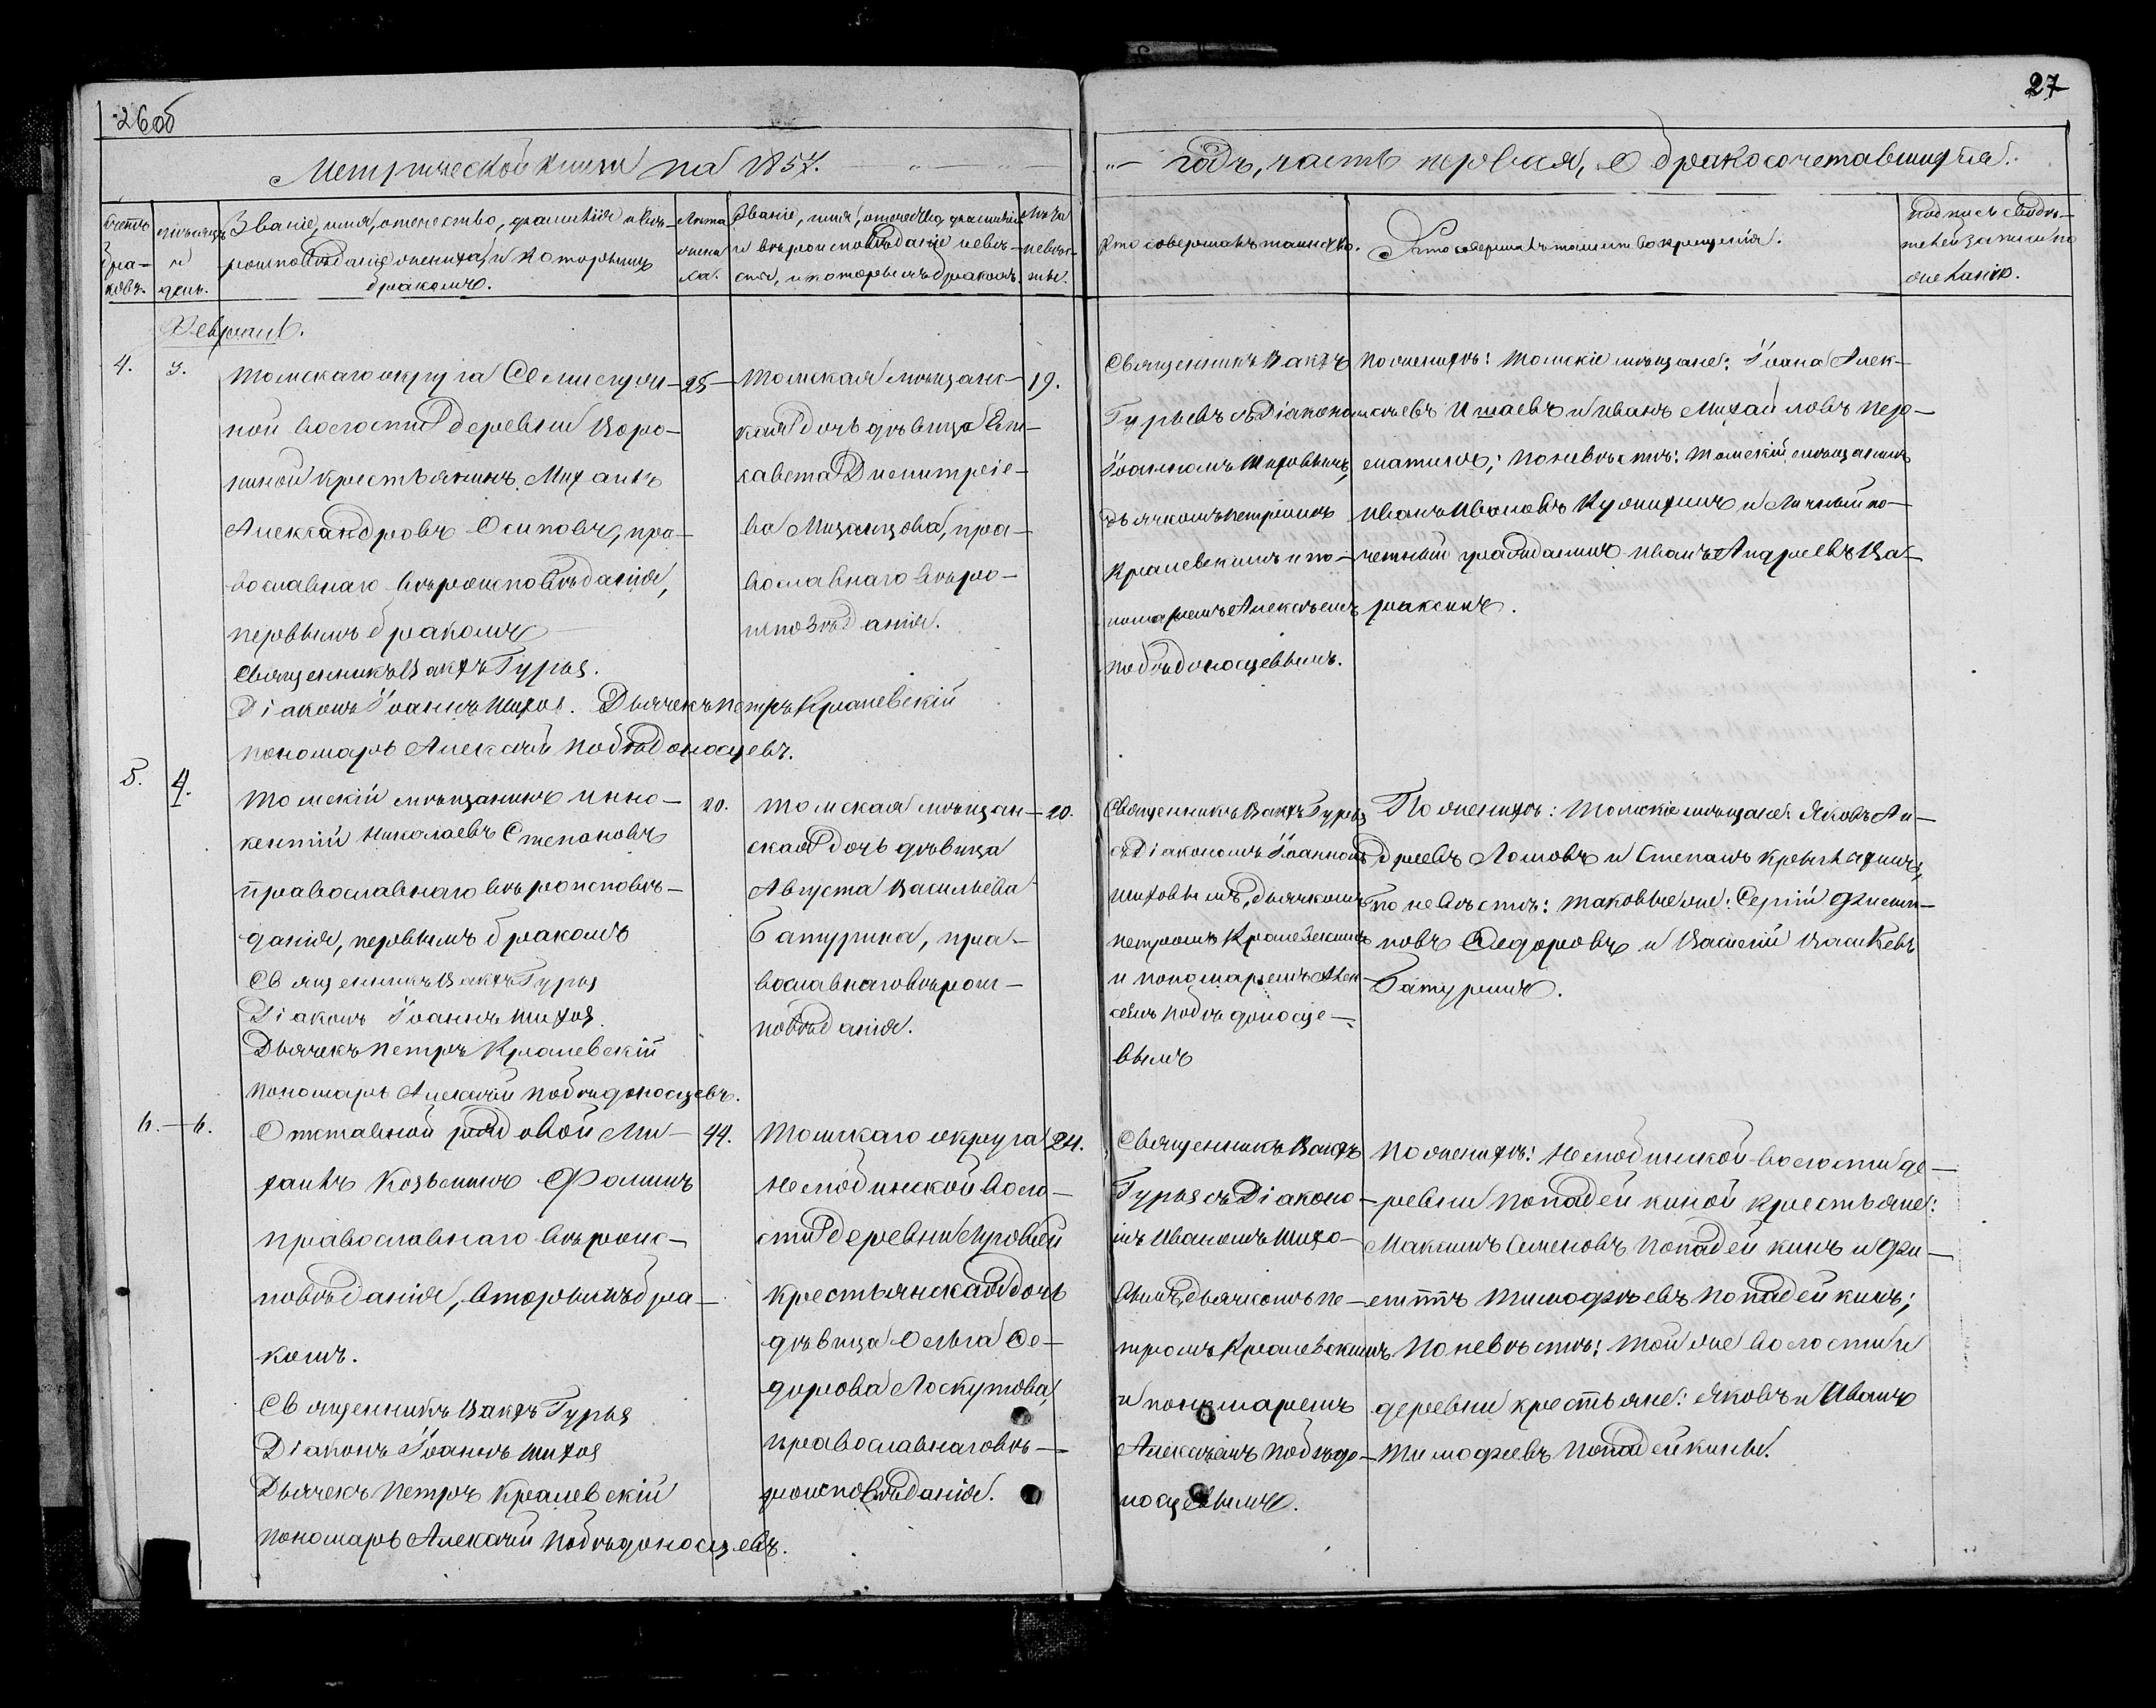 26 об
27
Метрической книги на 1857.
годъ, часть первая, о бракосочетавшихся.
Счетъ бра-
ковъ.
Мѣсяцъ
и
день.
Званіе, имя, отечество, фамилія и вѣ-
роисповѣданіе жениха, и которымъ
бракомъ.
Лѣта
жени
ха.
Званіе, имя, отечество, фамилія
и вѣроисповѣданіе невѣ-
сты, и которымъ бракомъ.
Лѣта
невѣс-
ты.
Кто совершалъ таинство.
Подпись свидѣ-
телей записи по
желанію.
Февраль.
4.
3.
Томскаго округа Семилуж-
ной волости деревни Воро-
ниной крестьянинъ Михаилъ
Александровъ Осиповъ, пра-
вославнаго вѣроисповѣданія,
первымъ бракомъ
Священникъ Вакхъ Гурьев.
Діаконъ Іоаннъ Шихов. Дьячекъ Петръ Кралевскій
пономарь Алексѣй Побѣдоносцевъ.
25
Томская мѣщанс-
кая дочь дѣвица Ели-
савета Димитріе-
ва, пра-
вославнаго вѣро-
исповѣданія.
19.
Священникъ Вакхъ
Гурьевъ съ Діакономъ
Іоанномъ Шиховымъ,
дьячкомъ Петромъ
Кралевскимъ и по-
номаремъ Алексѣемъ
Побѣдоносцевымъ.
По женихѣ: Томскіе мѣщане: Іоана Алек-
сѣевъ Ишаевъ и Иванъ Михайловъ Пер-
; по невѣстѣ: Томскій мѣщанинъ
Иванъ Ивановъ и Личный по-
четный гражданинъ Иванъ Андреевъ Ва-
раксинъ.
5.
4.
Томскій мѣщанинъ Инно-
кентій Николаевъ Степановъ
православнаго вѣроисповѣ-
данія, первымъ бракомъ
Священникъ Вакхъ Гурьев
Діаконъ Іоаннъ Шихов
Дьячекъ Петръ Кралевскій
пономарь Алексѣй Побѣдоносцевъ.
20.
Томская мѣщан-
ская дочь дѣвица
Августа Васильева
Батурина, пра-
вославнаго вѣроис-
повѣданія.
20.
Священникъ Вакхъ Гурьев
съ Діакономъ Іоанномъ
Шиховымъ, дьячкомъ
Петромъ Кралевскимъ
и пономаремъ Алек-
сѣемъ Побѣдоносце-
вымъ
По женихѣ: Томскіе мѣщане: Яковъ Ан-
дреевъ Ломовъ и Степанъ
По невѣстѣ: таковые же: Сергій Филип-
повъ Сидоровъ и Василій Васильевъ
Батуринъ.
6.
6.
Отставной рядовой Ми-
хаилъ Козьминъ Фоминъ
православнаго вѣроис-
повѣданія, вторымъ бра-
комъ.
Священникъ Вакхъ Гурьев
Діаконъ Іоаннъ Шихов
Дьячекъ Петръ Кралевскій
пономарь Алексѣй Побѣдоносцевъ.
44.
Томскаго округа
Нелюбинской воло-
сти деревни
крестьянская дочь
дѣвица Ольга Ѳе-
дорова Лоскутова,
православнаго вѣ-
роисповѣданія.
24.
Священникъ Вакхъ
Гурьев съ Діаконо-
мъ Иваномъ Шихо-
вымъ, дьячкомъ Пе-
тромъ Кралевскимъ
и пономаремъ
Алексѣемъ Побѣдо-
носцевымъ.
По женихѣ: Нелюбинской волости де-
ревни Попадейкиной крестьяне:
Максимъ Семеновъ Попадейкинъ и Фи-
липпъ Тимофѣевъ Попадейкинъ;
По невѣстѣ: той же волости и
деревни крестьяне: Яковъ и Иванъ
Тимофеевъ Попадейкины.